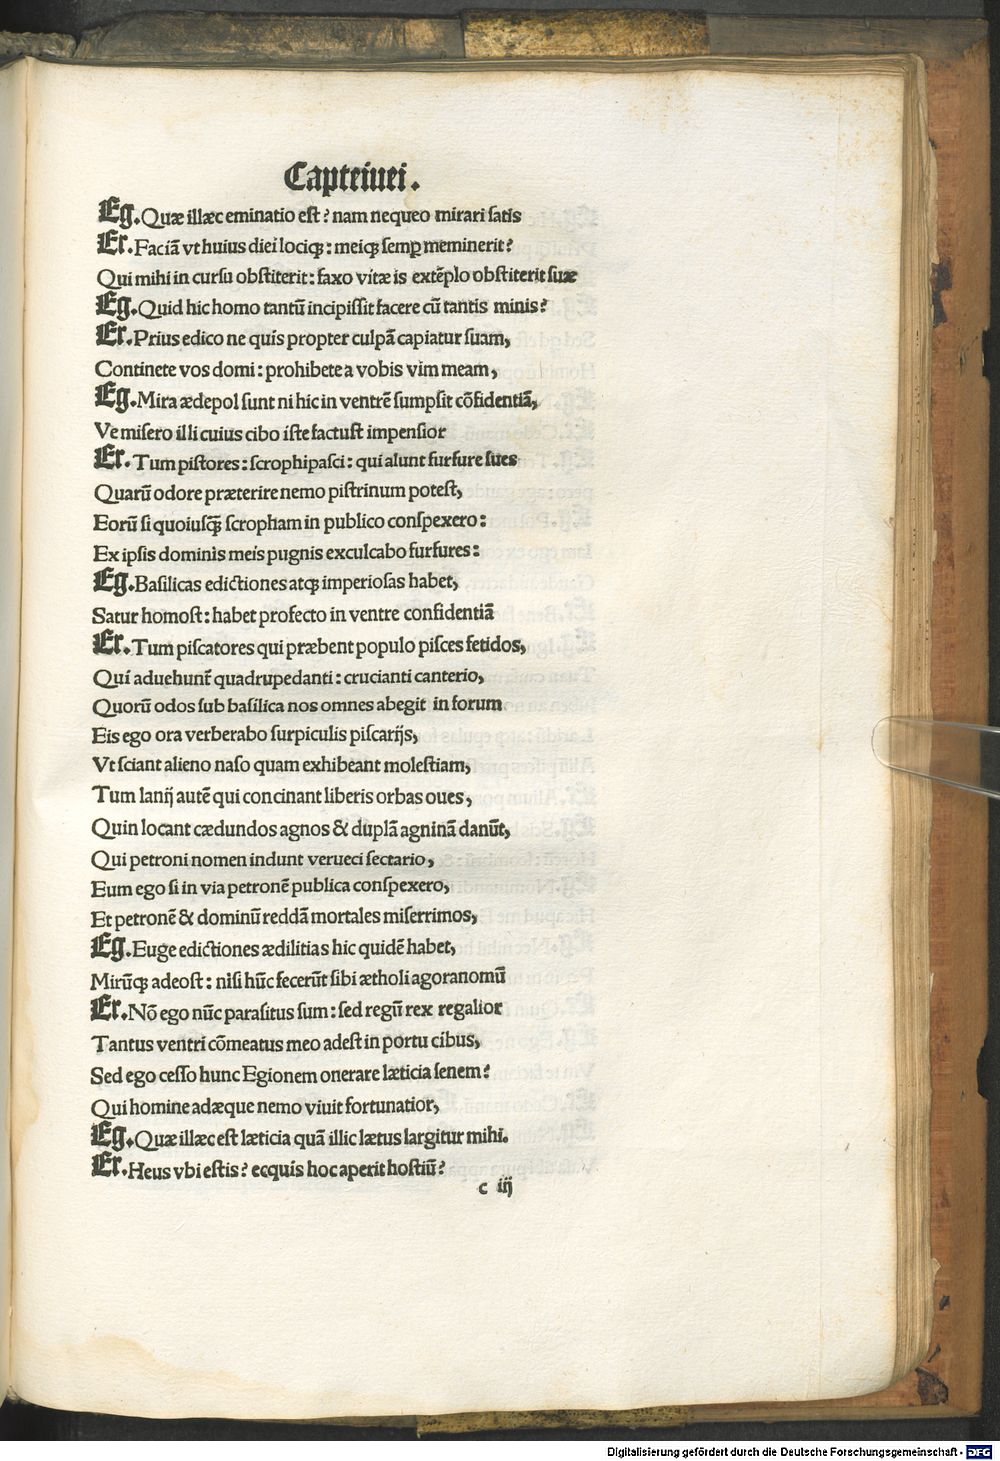 Capteiuei.
Eg. Quæ illæc eminatio est? nam nequeo mirari satis
Er. Faciã vt huius diei lociqꝫ: meiqꝫ semꝑ meminerit?
Qui mihi in cursu obstiterit: faxo vitæ is extẽplo obstiterit suæ
Eg. Quid hic homo tantũ incipissit facere cũ tantis minis?
Er. Prius edico ne quis propter culpã capiatur suam,
Continete vos domi: prohibete a vobis vim meam,
Eg. Mira ædepol sunt ni hic in ventrẽ sumpsit cõfidentiã,
Ve misero illi cuius cibo iste factust impensior
Er. Tum pistores: scrophipasci: qui alunt furfure sues
Quarũ odore præterire nemo pistrinum potest,
Eorũ si quoiusqꝫ scropham in publico conspexero:
Ex ipsis dominis meis pugnis exculcabo furfures:
Eg. Basilicas edictiones atqꝫ imperiosas habet,
Satur homost: habet profecto in ventre confidentiã
Er. Tum piscatores qui præbent populo pisces fetidos,
Qui aduehunt̃ quadrupedanti: crucianti canterio,
Quorũ odos sub basilica nos omnes abegit in forum
Eis ego ora verberabo surpiculis piscarijs,
Vt sciant alieno naso quam exhibeant molestiam,
Tum lanij autẽ qui concinant liberis orbas oues,
Quin locant cædundos agnos & duplã agninã danũt,
Qui petroni nomen indunt verueci sectario,
Eum ego si in via petronẽ publica conspexero,
Et petronẽ & dominũ reddã mortales miserrimos,
Eg. Euge edictiones ædilitias hic quidẽ habet,
Mirũqꝫ adeost: nisi hũc fecerũt sibi ætholi agoranomũ
Er. Nõ ego nũc parasitus sum: sed regũ rex regalior
Tantus ventri cõmeatus meo adest in portu cibus,
Sed ego cesso hunc Egionem onerare læticia senem?
Qui homine adæque nemo viuit fortunatior,
Eg. Quæ illæc est læticia quã illic lætus largitur mihi.
Er. Heus vbi estis? ecquis hoc aperit hostiũ?
c iij
Digitalisierung gefördert durch die Deutsche Forschungsgemeinschaft - DFG